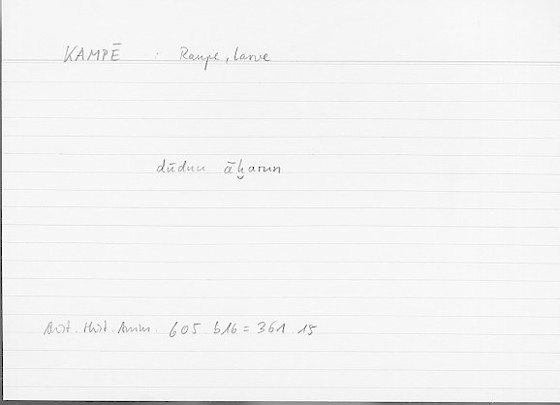 KAMPĒ : Raupe, Larve
dūdun āḫarun
Arist. Hist. Anim. 605 b16 = 361 15